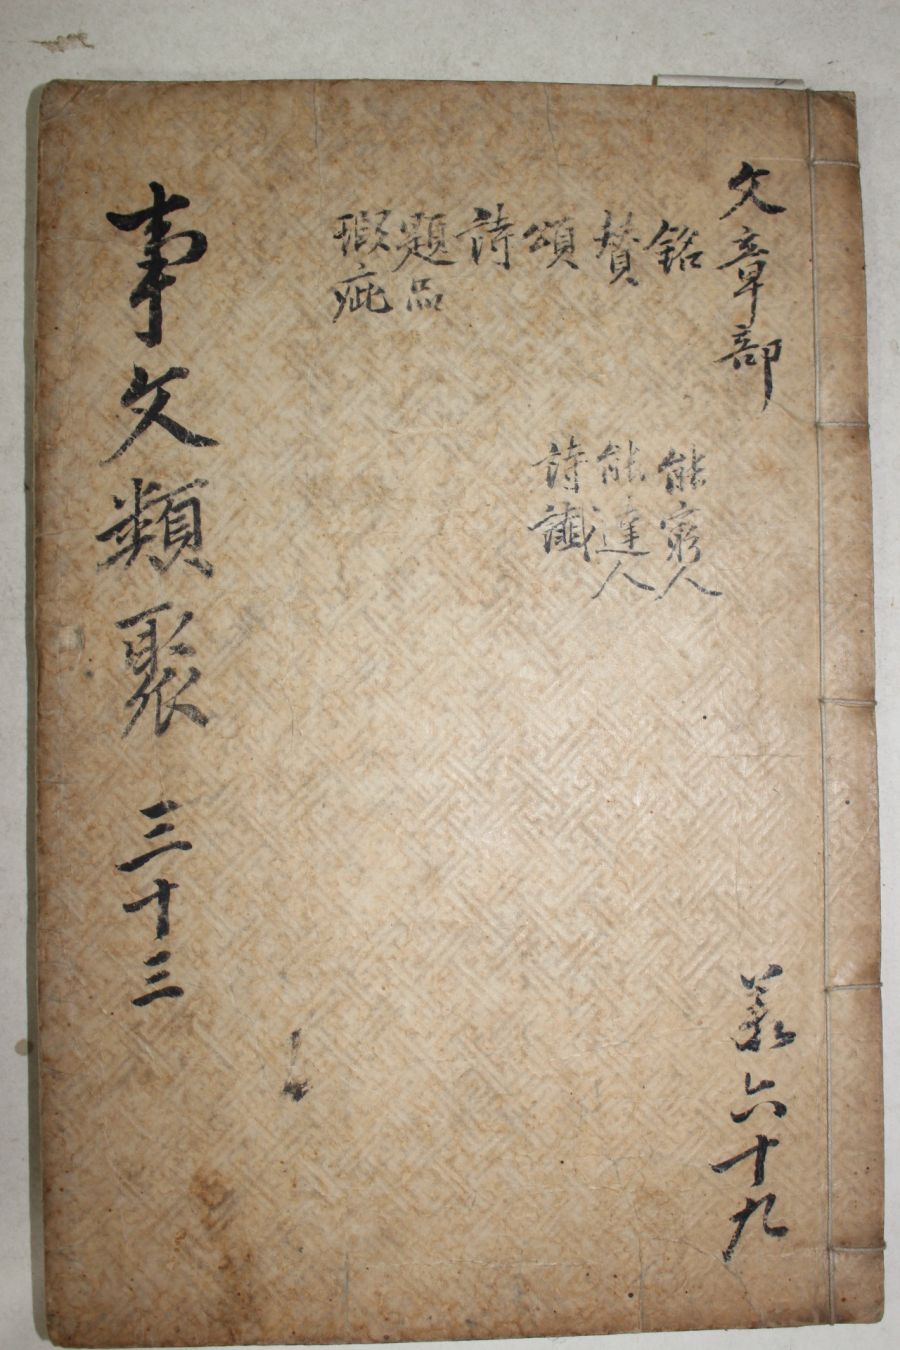 文章部
銘
賛
頌
詩
題品
瑕疵
能窮人
能達人
詩讖
六十九
事文類聚 三十三